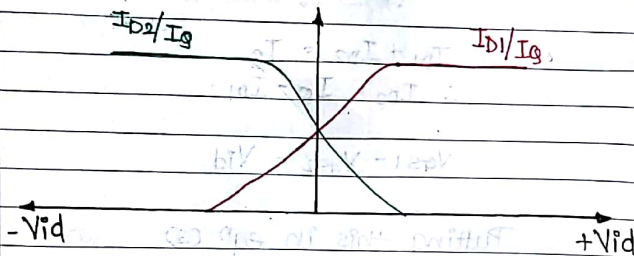 ID2/IQ
ID1/IQ
-Vid
+Vid